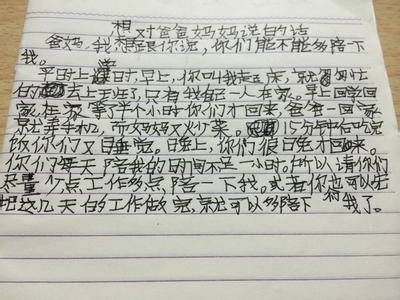 想对爸爸妈妈说的话
爸妈,我想跟你说,你们能不能多陪下
我。
平时上学日,早上,你叫我起床,就匆忙
的去上班了,只有我自己一人在家。早上回学回
家在家等半个小时你们才回来,爸爸一回家
就弄手机,而妈妈又炒菜。15分钟后吃完
饭你们又睡觉。晚上,你们很晚才回来。
你们每天陪我的时间不足一小时。所以请你们
尽量少点工作多点陪一下我。或者你也可以先
把这几天的工作做完,就可以多陪下我了。